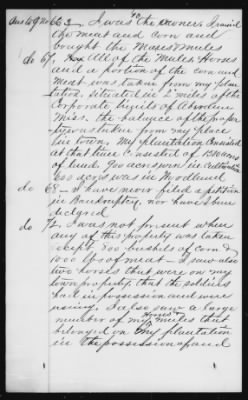 Ans to Qr No 63 - I was the owner, I raised
the meat and corn and
bought the Mules & mules
do 67. All of the Mules Horses
and a portion of the corn and
Meat was taken from my plan-
tation, situated in 2 miles of the
Corporate limits of Aberdeen
Miss. the balance of the proper-
ty was taken from my place
in town. My plantation consisted
at that time of
of land. 700 acres in Cultivation
600 acres was in Woodland
do 68 - I have never filed a petition
in Bankruptcy, nor have I been
do 72. I was not present when
any of this property was taken
except 800 bushels of corn &
1000 lbs of meat - I saw also
two horses that were on my
town property, that the soldiers
had in possession and were
using. I also saw a large
number of my Horses & mules that
belonged on my plantation
in the possession of and